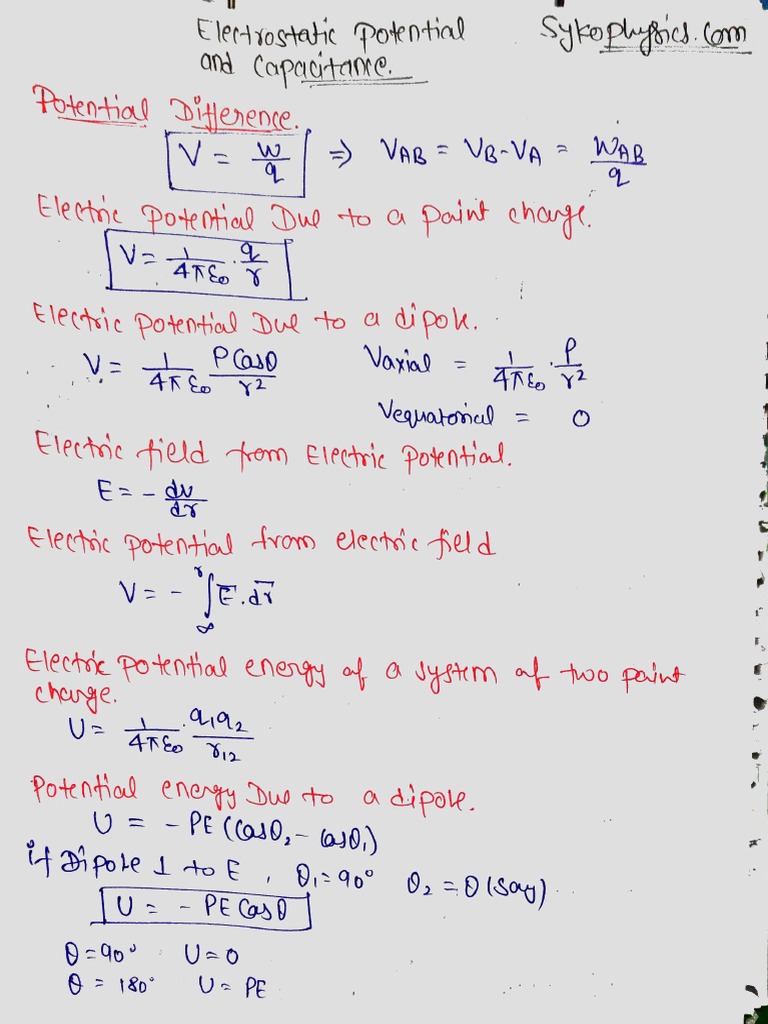 Electrostatic Potential Sykophysics.com
and Capacitance.
Potential Difference.
V = W/q ⇒ VAB = VB-VA = WAB/q
Electric Potential Due to a point charge.
V = 1/4πε₀ · q/r
Electric Potential Due to a dipole.
V = 1/4πε₀ PCosθ/r² Vaxial = 1/4πε₀ · P/r²
Vequatorial = 0
Electric field from Electric Potential.
E = - dv/dr
Electric potential from electric field
V = - ∫∞^r E̅.dr̅
Electric Potential energy of a system of two point
charge.
U = 1/4πε₀ · q₁q₂/r₁₂
Potential energy Due to a dipole.
U = - PE (Cosθ₂ - Cosθ₁)
if Dipole ⊥ to E , θ₁ = 90° θ₂ = θ (say)
U = - PE Cosθ
θ = 90° U = 0
θ = 180° U = PE